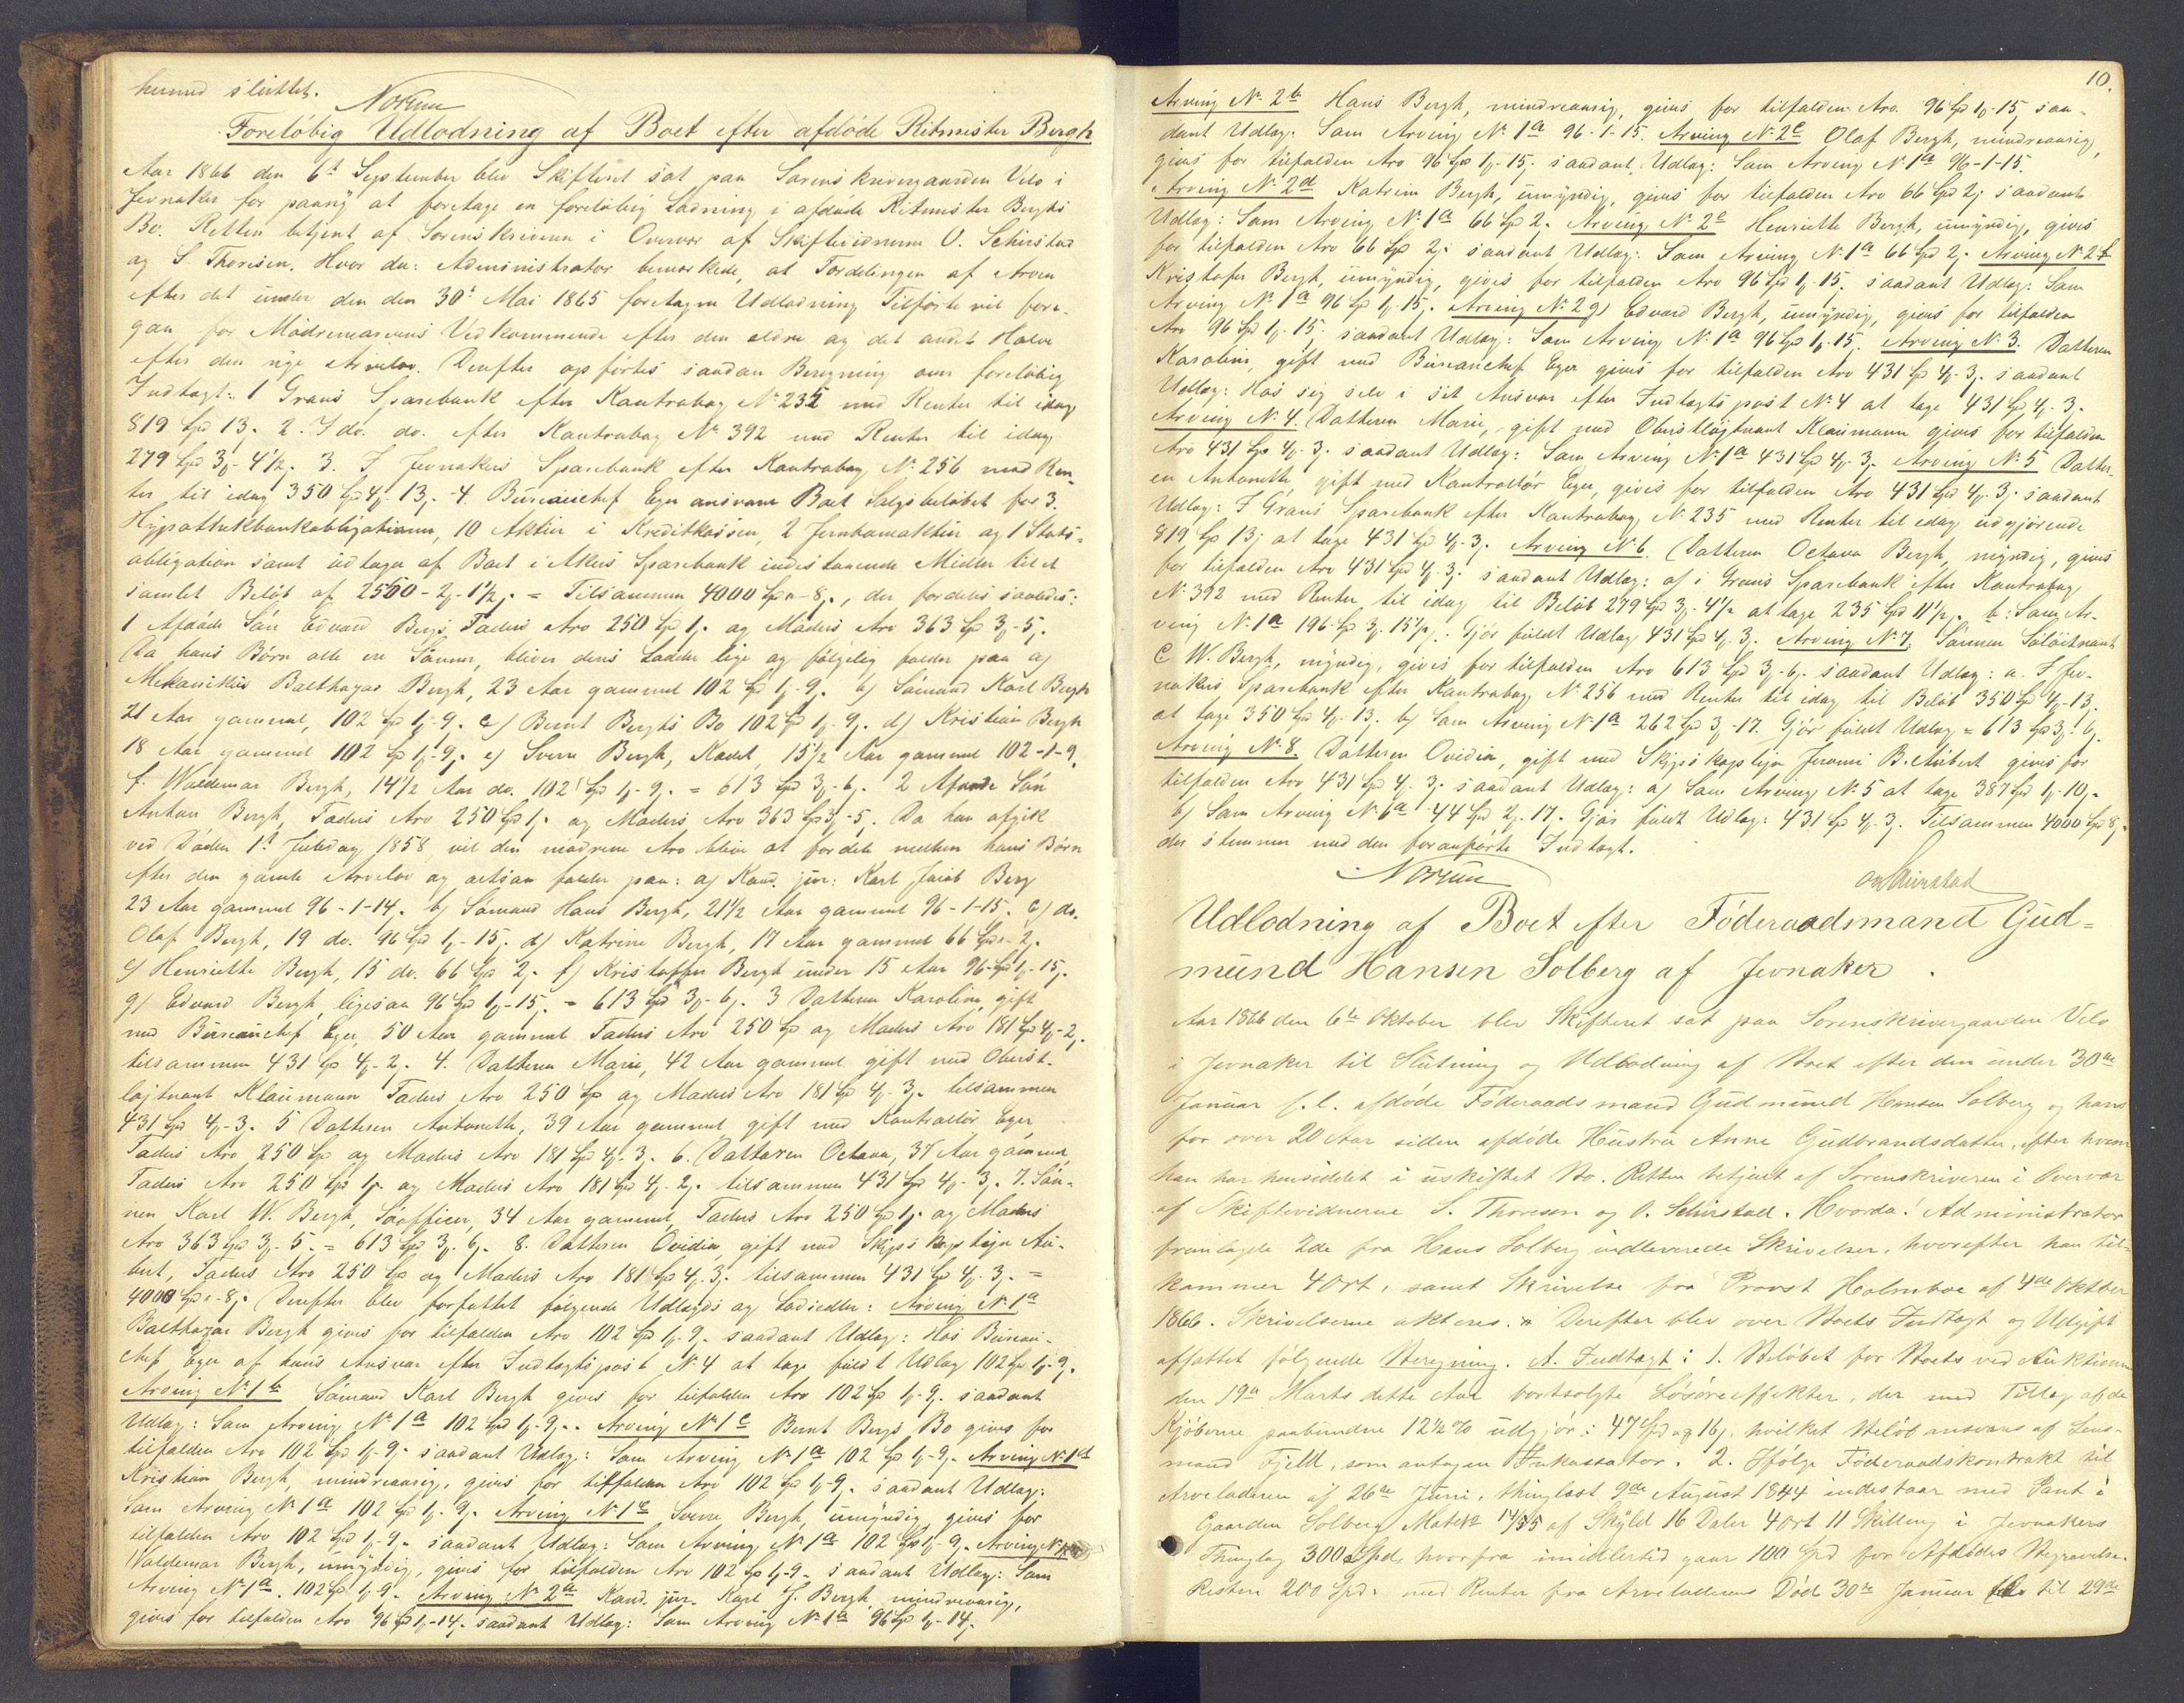 hermed sluttet.
Norum
Foreløbig Udlodning af Boet efter afdøde Ritmester Bergh
Aar 1866 den 6te September blev Skifteret sat paa Sorenskrivergaarden Velo i
Jevnaker for paany at foretage en foreløbig Lodning i afdøde Ritmester Berghs
Bo. Retten betjent af Sorenskriveren i Overvær af Skiftevidnerne O. Schirstad
og S. Thoresen. Hvor da: Administrator bemærkede, at Fordelingen af Arven
efter det under den den 30te Mai 1865 foretagne Udlodning Tilførte vil fore-
gaa for Mødrenearvens Vedkommende efter den ældre og det andet Halve
efter den nye Arvelov. Derefter opførtes saadan Beregning over foreløbig
Indtægt: 1 Grans Sparebank efter Kontrabog No 235 med Renter til idag
819 Spd 13 ſ. 2. I do. do. efter Kontrabog No 392 med Renter til idag
279 Spd 3 ƒ - 4½ ſ. 3. I Jevnakers Sparebank efter Kontrabog No 256 med Ren-
ter til idag 350 Spd 4 - 13 ſ. 4. Bureauchef Eger ansvarer Boet Salgsbeløbet for 3
Hypothekbankobligationer, 10 Aktier i Kreditkassen, 2 Jernbaneaktier og 1 Stats-
obligation samt udtagne af Boet i Akers Sparebank indestaaende Midler til et
samlet Beløb af 2550 - 2 - 1½ ſ. = Tilsammen 4000 Spd - 8 ſ., der fordeles saaledes:
1 Afdøde Søn Edvard Bergs Faders Arv 250 Spd 1 ſ. og Moders Arv 363 Spd 3 - 5 ſ.
Da hans Børn alle ere Sønner, bliver deres Lodder lige og følgelig falder paa a)
Mekanikus Balthazar Bergh, 23 Aar gammel 102 Spd 1 - 9. b) Sømand Karl Bergh
21 Aar gammel, 102 Spd 1 - 9. c) Bernt Berghs Bo 102 Spd 1 - 9. d) Kristian Bergh
18 Aar gammel 102 Spd 1 - 9. e) Sverre Bergh, Kadet, 15½ Aar gammel 102 - 1 - 9.
f. Waldemar Bergh, 14½ Aar do. 102 Spd 1 - 9. = 613 Spd 3 - 6. 2 Afdøde Søn
Anton Bergh, Faders Arv 250 Spd 1 ſ. og Moders Arv 363 Spd 3 - 5. Da han afgik
ved Døden 1te Juledag 1858, vil den mødrene Arv blive at fordele mellem hans Børn
efter den gamle Arvelov og altsaa falder paa: a) Kand. jur: Karl Jakob Berg
23 Aar gammel 96 - 1 - 14. b) Sømand Hans Bergh, 21½ Aar gammel 96 - 1 - 15. c) do.
Olaf Bergh, 19 do. 96 Spd 1 - 15. d) Katrine Bergh, 17 Aar gammel 66 Spd - 2.
e) Henriette Bergh, 15 do. 66 Spd 2. f) Kristoffer Bergh under 15 Aar 96 Spd 1 - 15.
g) Edvard Bergh, ligesaa 96 Spd 1 - 15. = 613 Spd 3 - 6. 3 Datteren Karoline, gift
med Bureauchef Eger, 50 Aar gammel Faders Arv 250 Spd og Moders Arv 181 Spd 4 - 2
tilsammen 431 Spd 4 - 2. 4. Datteren Marie, 42 Aar gammel gift med Oberst-
løjtnant Klaumann Faders Arv 250 Spd og Moders Arv 181 Spd 4 - 3. tilsammen
431 Spd 4 - 3. 5 Datteren Antonette, 39 Aar gammel gift med Kontrollør Eger,
Faders Arv 250 Spd og Moders Arv 181 Spd 4 - 3. 6. Datteren Octava, 37 Aar gammel,
Faders Arv 250 Spd 1 ſ. og Moders Arv 181 Spd 4 - 2. tilsammen 431 Spd 4 - 3. 7. Søn-
nen Karl W. Bergh, Søofficer, 34 Aar gammel, Faders Arv 250 Spd 1 ſ. og Moders
Arv 363 Spd 3 - 5. = 613 Spd 3 - 6. 8. Datteren Ovidia, gift med Skipskaptein Au-
bert, Faders Arv 250 Spd og Moders Arv 181 Spd 4 - 3. tilsammen 431 Spd 4 - 3. =
4000 Spd - 8. Derefter blev forfattet følgende Udlægs og Lodsedler: Arving No 1a
Balthazar Bergh gives for tilfalden Arv 102 Spd 1 - 9. saadant Udlæg: Hos Bureau-
chef Eger af hans Ansvar efter Indtægtspost No 4 at tage fuldt Udlæg 102 Spd 1 - 9.
Arving No 1b Sømand Karl Bergh gives for tilfalden Arv 102 Spd 1 - 9. saadant
Udlæg: Som Arving No 1a 102 Spd 1 - 9. Arving No 1c Bernt Bergs Bo gives for
tilfalden Arv 102 Spd 1 - 9. saadant Udlæg: Som Arving No 1a 102 Spd 1 - 9. Arving No 1d
Kristian Bergh, mindreaarig, gives for tilfalden Arv 102 Spd 1 - 9. saadant Udlæg:
Som Arving No 1a 102 Spd 1 - 9. Arving No 1e Sverre Bergh, umyndig, gives for
tilfalden Arv 102 Spd 1 - 9. saadant Udlæg: Som Arving No 1a 102 Spd 1 - 9. Arving No
Valdemar Bergh, umyndig, gives for tilfalden Arv 102 Spd 1 - 9. saadant Udlæg: Som
Arving No 1a. 102 Spd 1 - 9. Arving No 2a Kand. jur. Karl J. Bergh, mindreaarig,
gives for tilfalden Arv 96 Spd 1 - 14. saadant Udlæg: Som Arving No 1a 96 Spd 1 - 14.
10.
Arving No 2b Hans Bergh, mindreaarig, gives for tilfalden Arv 96 Spd 1 - 15, saa-
dant Udlæg: Som Arving No 1a 96 - 1 - 15. Arving No 2c Olaf Bergh, mindreaarig,
gives for tilfalden Arv 96 Spd 1 - 15. saadant Udlæg: Som Arving No 1a 96 - 1 - 15.
Arving No 2d Katrine Bergh, umyndig, gives for tilfalden Arv 66 Spd 2 saadant
Udlæg: Som Arving No 1a 66 Spd 2. Arving No 2e Henriette Bergh, umyndig, gives
for tilfalden Arv 66 Spd 2. saadant Udlæg: Som Arving No 1a 66 Spd 2. Arving No 2f
Kristofer Bergh, umyndig, gives for tilfalden Arv 96 Spd 1 - 15. saadant Udlæg: Som
Arving No 1a 96 Spd 1 - 15. Arving No 2g) Edvard Bergh, umyndig, gives for tilfalden
Arv 96 Spd 1 - 15. saadant Udlæg: Som Arving No 1a 96 Spd 1 - 15. Arving No 3. Datteren
Karoline, gift med Bureauchef Eger gives for tilfalden Arv 431 Spd 4 - 3. saadant
Udlæg: Hos sig selv i sit Ansvar efter Indtægtspost No 4 at tage 431 Spd 4 - 3.
Arving No 4. Datteren Marie, gift med Oberstløjtnant Klaumann gives for tilfalden
Arv 431 Spd 4 - 3. saadant Udlæg: Som Arving No 1a 431 Spd 4 - 3. Arving No 5 Datter-
en Antonette gift med Kontrollør Eger, gives for tilfalden Arv 431 Spd 4 - 3. saadant
Udlæg: I Grans Sparebank efter Kontrabog No 235 med Renter til idag udgjørende
819 Spd 13 at tage 431 Spd 4 - 3. Arving No 6. Datteren Octava Bergh, myndig, gives
for tilfalden Arv 431 Spd 4 - 3. saadant Udlæg: a) i Grans Sparebank efter Kontrabog
No 392 med Renter til idag til Beløb 279 Spd 3 - 4½ at tage 235 Spd 11½. b: Som Ar-
ving No 1a 196 Spd 3 - 15½. Gjør fuldt Udlæg 431 Spd 4 - 3. Arving No 7. Sønnen Søløitnant
C W. Bergh, myndig, gives for tilfalden Arv 613 Spd 3 - 6. saadant Udlæg: a. I Jev-
nakers Sparebank efter Kontrabog No 256 med Renter til idag til Beløb 350 Spd 4 - 13.
at tage 350 Spd 4 - 13. b) Som Arving No 1a 262 Spd 3 - 17. Gjør fuldt Udlæg = 613 Spd 3 - 6.
Arving No 8. Datteren Ovidia, gift med Skipskaptein B. Aubert gives for
tilfalden Arv 431 Spd 4 - 3. saadant Udlæg: a) Som Arving No 5 at tage 387 Spd 1 - 10.
b) Som Arving No 6a 44 Spd 2 - 17. Gjør fuldt Udlæg: 431 Spd 4 - 3. Tilsammen 4000 Spd 8.
der stemmer med den foranførte Indtægt.
Norum
O Schirstad
Udlodning af Boet efter Føderaadsmand Gud-
mund Hansen Solberg af Jevnaker.
Aar 1866 den 6te Oktober blev Skifteret sat paa Sorenskrivergaarden Velo
i Jevnaker til Slutning og Udlodning af Boet efter den under 30te
Januar f. l. afdøde Føderaadsmand Gudmund Hansen Solberg og hans
for over 20 Aar siden afdøde Hustru Anne Gudbrandsdatter, efter hvem
han har hensiddet i uskiftet Bo. Retten betjent af Sorenskriveren i Overvær
af Skiftevidnerne S. Thoresen og O. Schirstad. Hvorda: Administrator
fremlagde 2de fra Hans Solberg indleverede Skrivelser, hvorefter han til-
kommer 4 Ort, samt Skrivelse fra Provst Holmboe af 4de Oktober
1866. Skrivelserne akteres. Derefter blev over Boets Indtægt og Udgift
affattet følgende Beregning. A. Indtægt: 1. Beløbet for Boets ved Auktionen
den 19de Marts dette Aar bortsolgte Løsøreeffekter, der med Tillæg af de
Kjøberne paabundne 12½ % udgjør: 47 Spd og 16, hvilket Beløb ansvares af Lens-
mand Fjeld, som antagen Inkassator. 2. Ifølge Føderaadskontrakt til
Arveladeren af 26de Juni, thinglæst 9de August 1844 indestaar med Pant i
Gaarden Solberg Matr No 14/55 af Skyld 16 Daler 4 Ort 11 Skilling i Jevnakers
Thinglag 300 Spd, hvorfra imidlertid gaar 100 Spd for Afdødes Begravelse.
Resten 200 Spd. med Renter fra Arveladerens Død 30te Januar til 29de